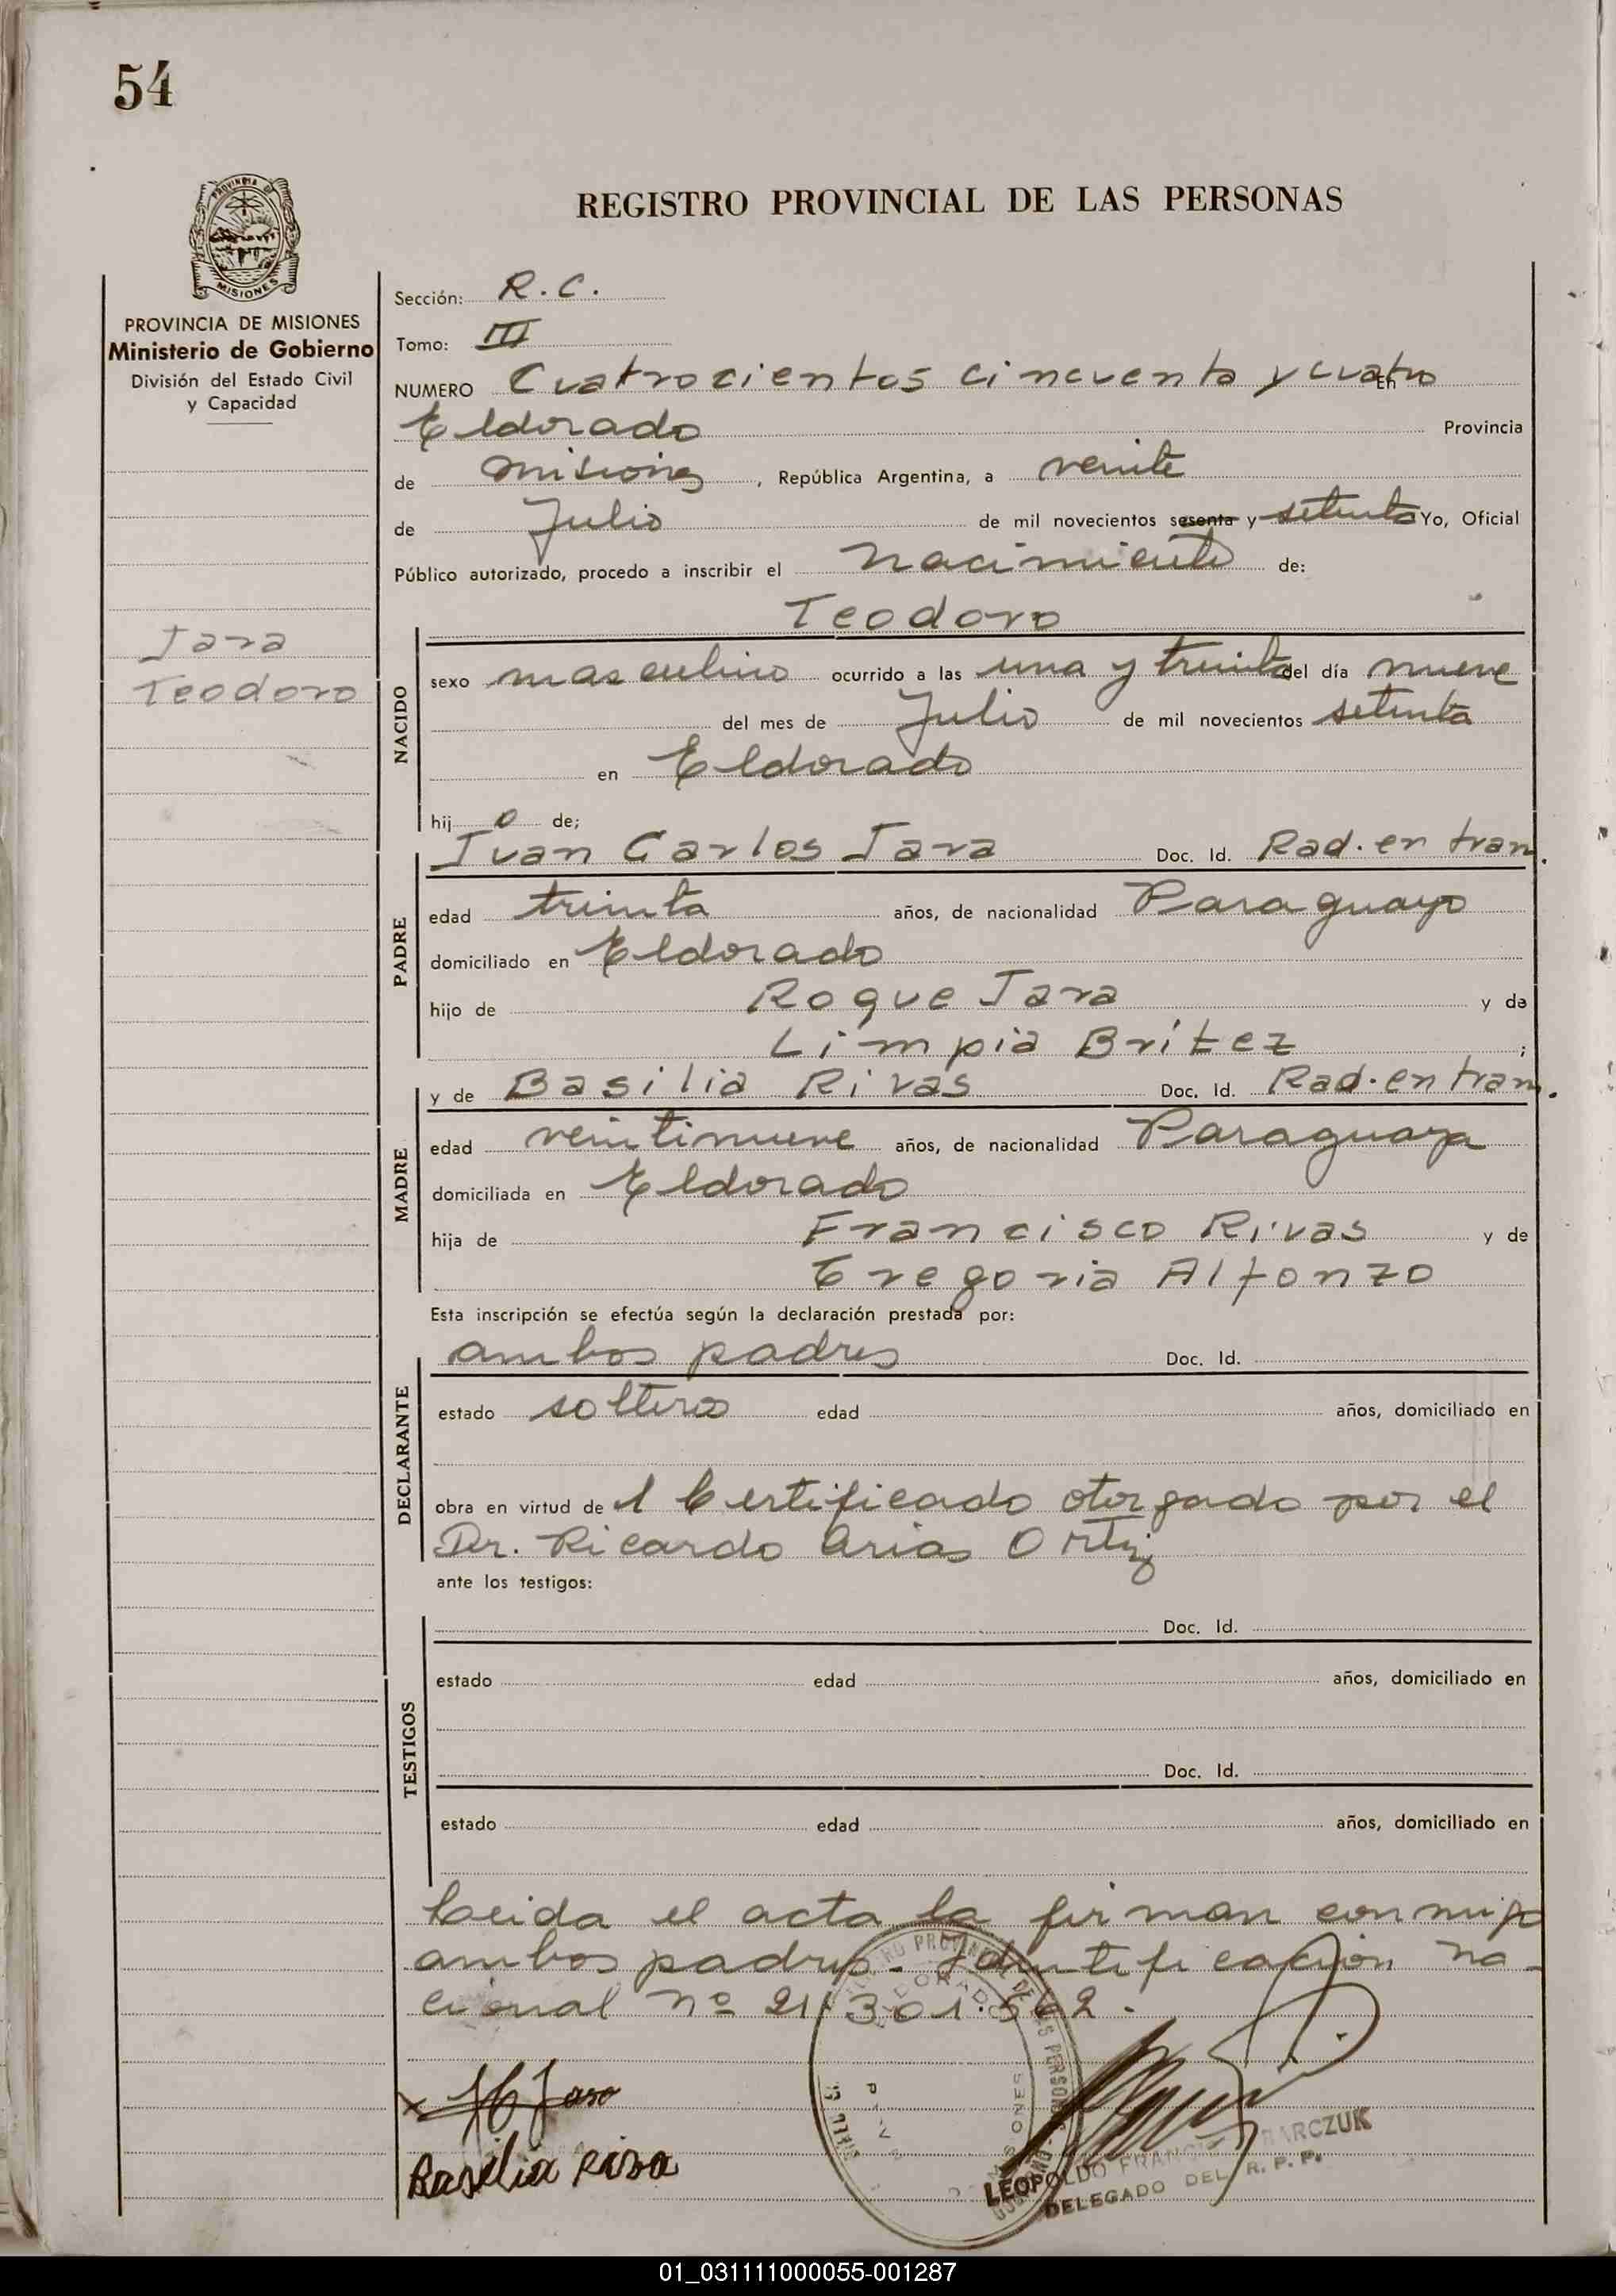 54
REGISTRO PROVINCIAL DE LAS PERSONAS
PROVINCIA DE MISIONES
PROVINCIA DE MISIONES
Ministerio de Gobierno
División del Estado Civil
y Capacidad
Jara
Teodoro
Sección: R. C.
Tomo: III
NUMERO Cuatrocientos cincuenta y cuatro En
Eldorado Provincia
de Misiones, República Argentina, a veinte
de Julio de mil novecientos sesenta y setenta Yo, Oficial
Público autorizado, procedo a inscribir el nacimiento de:
Teodoro
NACIDO
sexo masculino ocurrido a las una y treinta del día nueve
del mes de Julio de mil novecientos setenta
en Eldorado
hijo de;
Juan Carlos Jara Doc. Id. Rad. en tram.
PADRE
edad treinta años, de nacionalidad Paraguayo
domiciliado en Eldorado
hijo de Roque Jara y de
Limpia Britez ;
y de Basilia Rivas Doc. Id. Rad. en tram.
MADRE
edad veintinueve años, de nacionalidad Paraguaya
domiciliada en Eldorado
hija de Francisco Rivas y de
Gregoria Alfonzo
Esta inscripción se efectúa según la declaración prestada por:
ambos padres Doc. Id.
DECLARANTE
estado solteros edad años, domiciliado en
obra en virtud del Certificado otorgado por el
Dr. Ricardo Arias Ortiz
ante los testigos:
Doc. Id.
TESTIGOS
estado edad años, domiciliado en
Doc. Id.
estado edad años, domiciliado en
Leida el acta la firman conmigo
ambos padres. Identificación Na-
cional nº 21.301.562.
Basilia Riva
LEOPOLDO FRANCI
DELEGADO DEL R. P. P.
01_031111000055-001287